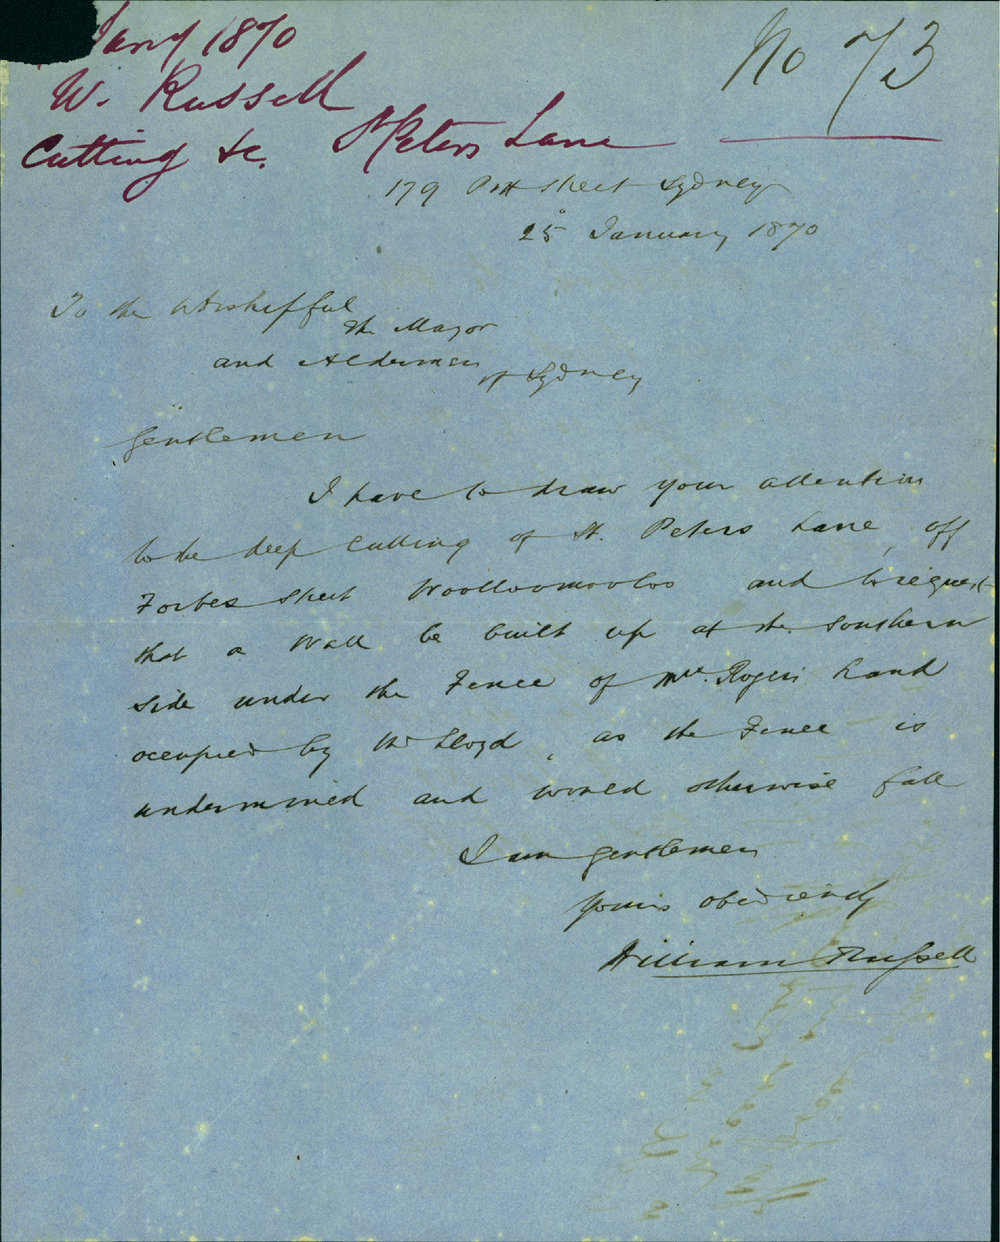 Jany 1870
No 73
W. Russell
Cutting &c. St Peters Lane
179 Pitt Street Sydney
25 January 1870
To the Worshipful
the Mayor
and Aldermen
of Sydney
Gentlemen
I have to draw your attention
to the deep Cutting of St. Peters Lane, off
Forbes Street Woolloomooloo and to request
that a Wall be built up at the Southern
side under the Fence of Mrs. Rogers Land
occupied by Mr Lloyd, as the Fence is
undermined and would otherwise fall
I am gentlemen
Yours obediently
William Russell